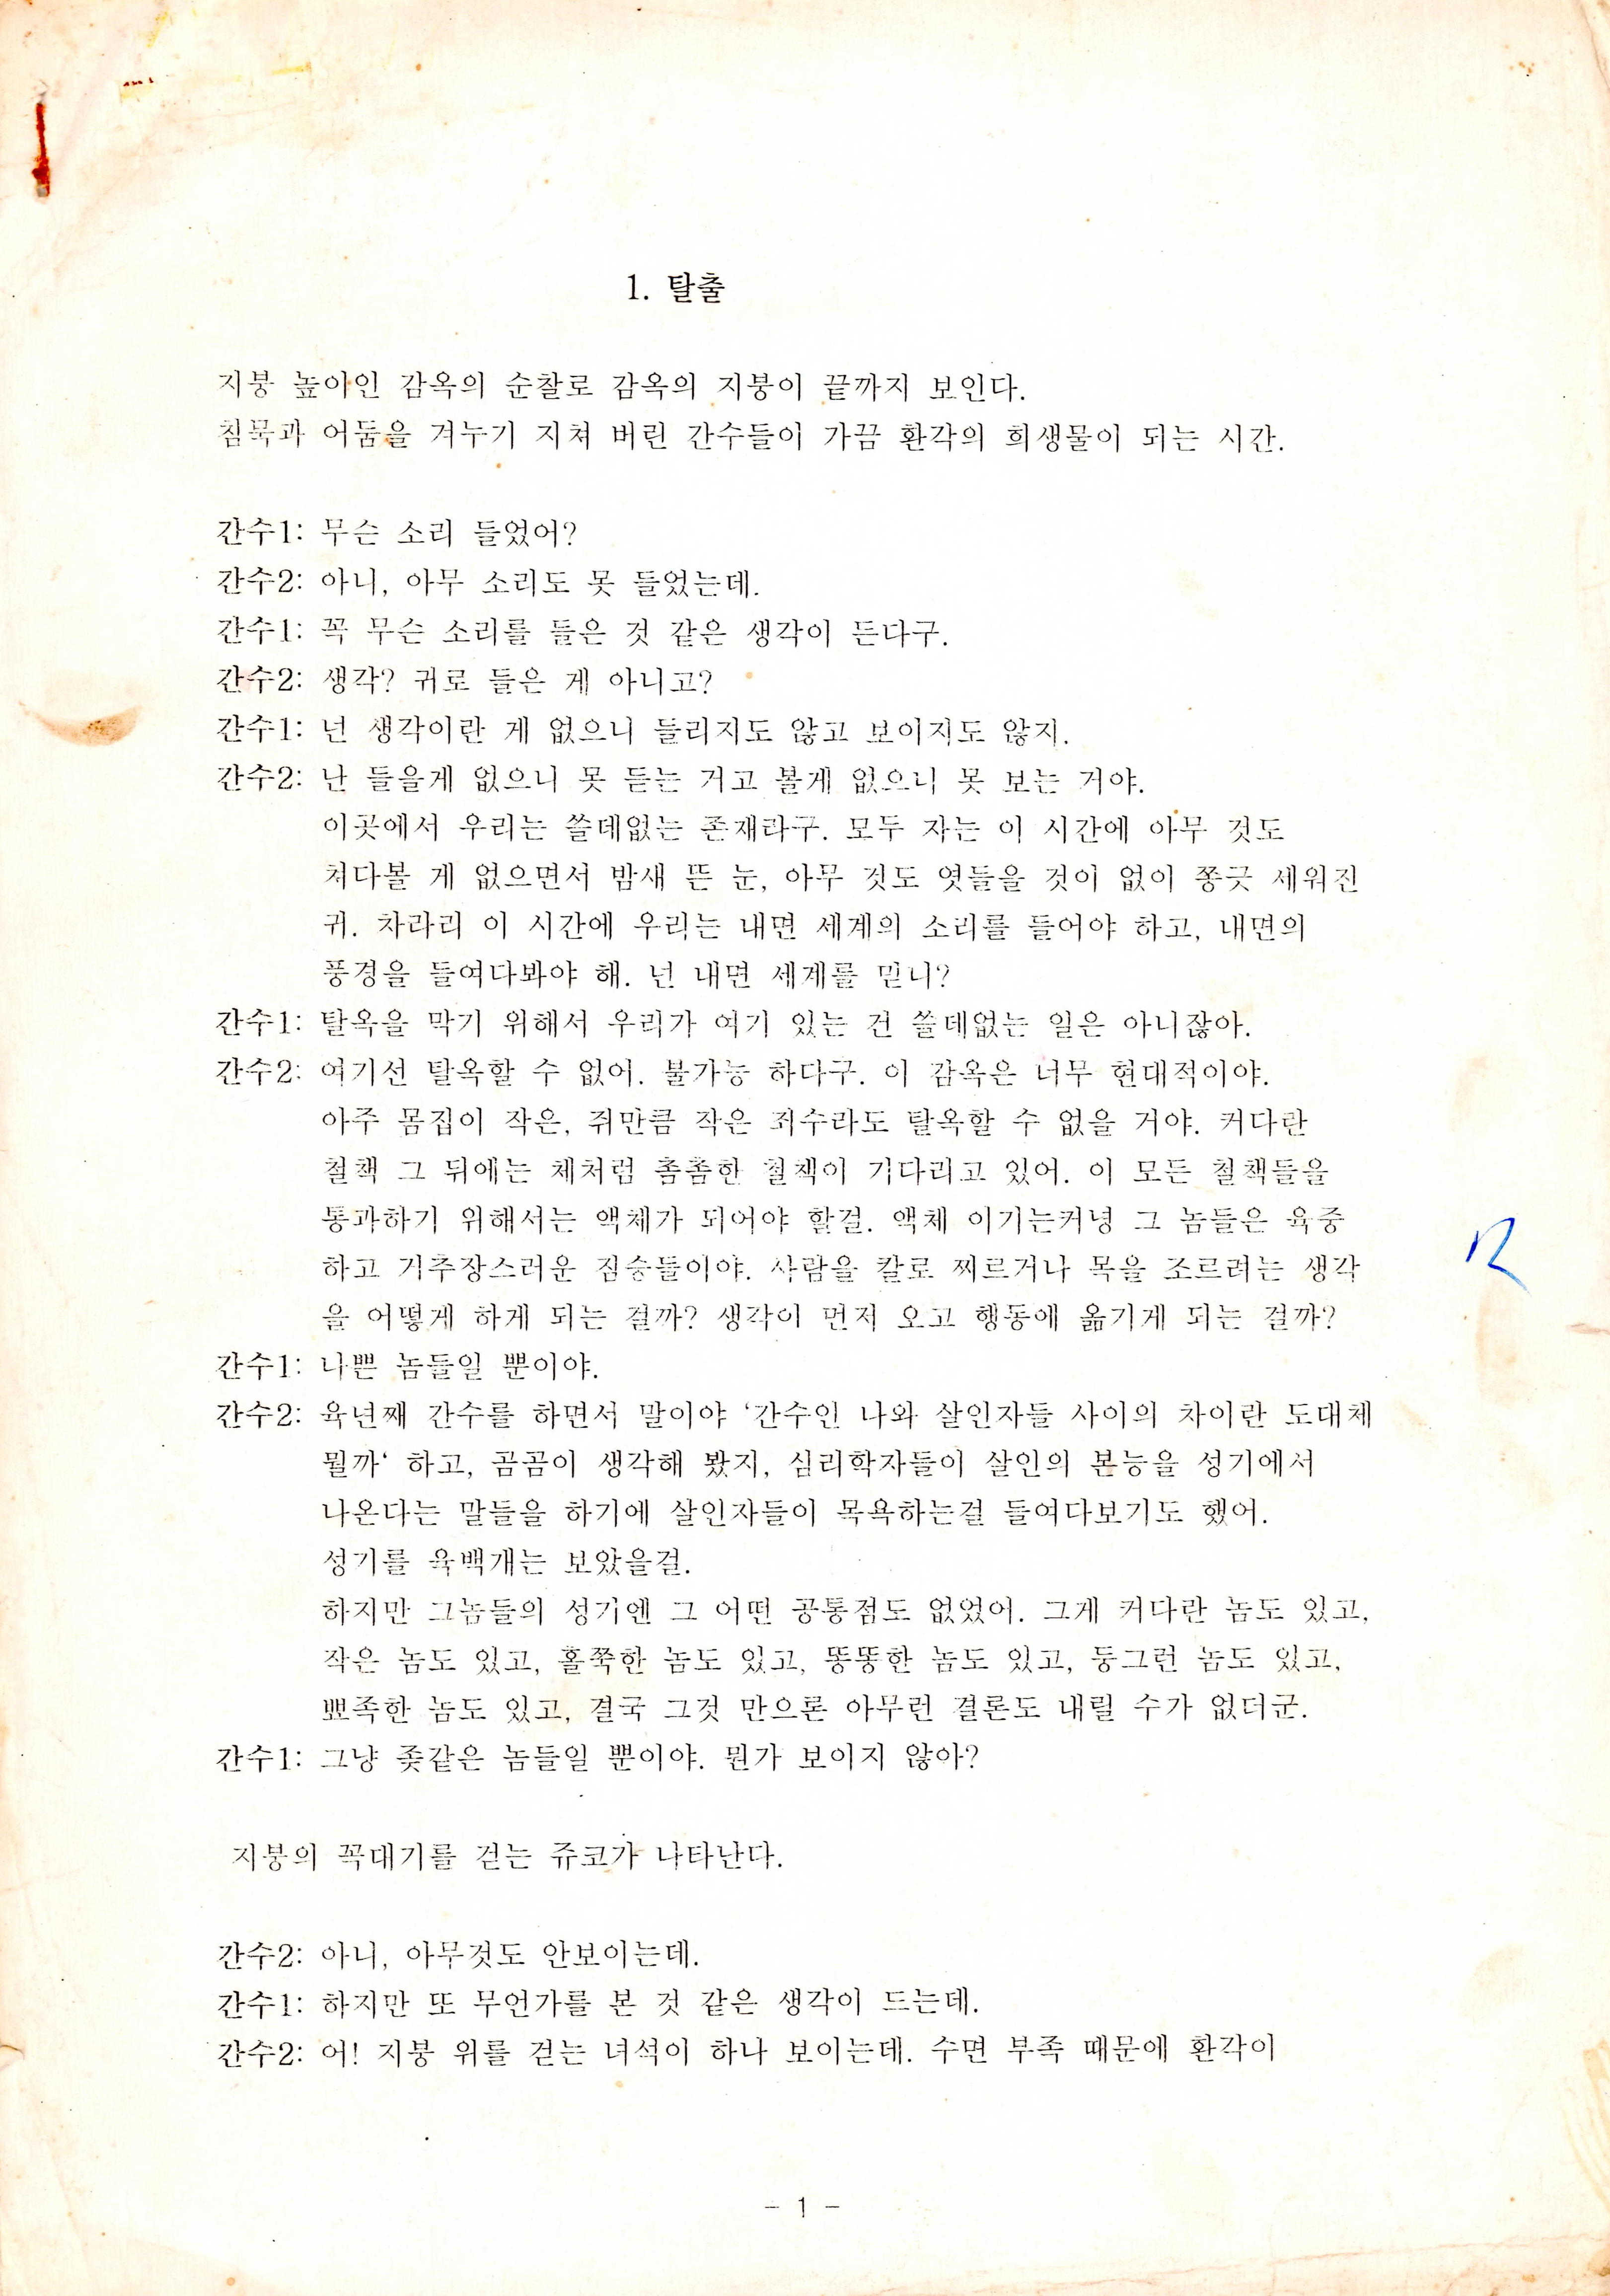 1. 탈출
지붕 높이인 감옥의 순찰로 감옥의 지붕이 끝까지 보인다.
침묵과 어둠을 겨누기 지쳐 버린 간수들이 가끔 환각의 희생물이 되는 시간.
간수1: 무슨 소리 들었어?
간수2: 아니, 아무 소리도 못 들었는데.
간수1: 꼭 무슨 소리를 들은 것 같은 생각이 든다구.
간수2: 생각? 귀로 들은 게 아니고?
간수1: 넌 생각이란 게 없으니 들리지도 않고 보이지도 않지.
간수2: 난 들을게 없으니 못 듣는 거고 볼게 없으니 못 보는 거야.
이곳에서 우리는 쓸데없는 존재라구. 모두 자는 이 시간에 아무 것도
쳐다볼 게 없으면서 밤새 뜬 눈, 아무 것도 엿들을 것이 없이 쫑긋 세워진
귀. 차라리 이 시간에 우리는 내면 세계의 소리를 들어야 하고, 내면의
풍경을 들여다봐야 해. 넌 내면 세계를 믿니?
간수1: 탈옥을 막기 위해서 우리가 여기 있는 건 쓸데없는 일은 아니잖아.
간수2: 여기선 탈옥할 수 없어. 불가능 하다구. 이 감옥은 너무 현대적이야.
아주 몸집이 작은, 쥐만큼 작은 죄수라도 탈옥할 수 없을 거야. 커다란
철책 그 뒤에는 체처럼 촘촘한 철책이 기다리고 있어. 이 모든 철책들을
통과하기 위해서는 액체가 되어야 할걸. 액체 이기는커녕 그 놈들은 육중
하고 거추장스러운 짐승들이야. 사람을 칼로 찌르거나 목을 조르려는 생각
을 어떻게 하게 되는 걸까? 생각이 먼저 오고 행동에 옮기게 되는 걸까?
간수1: 나쁜 놈들일 뿐이야.
간수2: 육년째 간수를 하면서 말이야 ‘간수인 나와 살인자들 사이의 차이란 도대체
뭘까‘ 하고, 곰곰이 생각해 봤지, 심리학자들이 살인의 본능을 성기에서
나온다는 말들을 하기에 살인자들이 목욕하는걸 들여다보기도 했어.
성기를 육백개는 보았을걸.
하지만 그놈들의 성기엔 그 어떤 공통점도 없었어. 그게 커다란 놈도 있고,
작은 놈도 있고, 홀쭉한 놈도 있고, 똥똥한 놈도 있고, 둥그런 놈도 있고,
뾰족한 놈도 있고, 결국 그것 만으론 아무런 결론도 내릴 수가 없더군.
간수1: 그냥 좆같은 놈들일 뿐이야. 뭔가 보이지 않아?
지붕의 꼭대기를 걷는 쥬코가 나타난다.
간수2: 아니, 아무것도 안보이는데.
간수1: 하지만 또 무언가를 본 것 같은 생각이 드는데.
간수2: 어! 지붕 위를 걷는 녀석이 하나 보이는데. 수면 부족 때문에 환각이
- 1 -